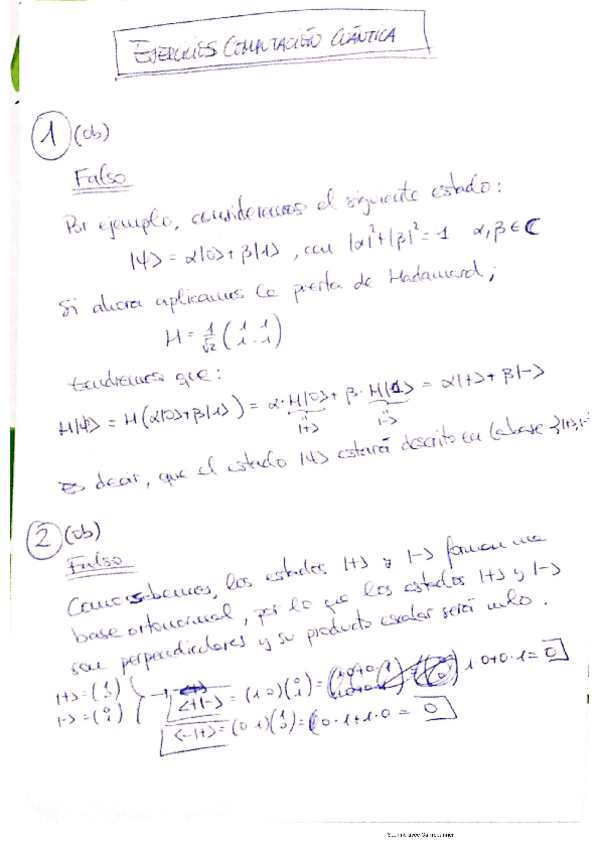 EJERCICIOS COMPUTACIÓN CUÁNTICA
1 (ob)
Falso
Por ejemplo, consideramos el siguiente estado:
|ψ> = α|0> + β|1>, con |α|²+|β|² = 1 α,β ∈ ℂ
Si ahora aplicamos la puerta de Hadamard;
H = 1/√2 (1 1
1 -1)
tendremos que:
H|ψ> = H(α|0>+β|1>) = α·H|0> + β·H|1> = α|+> + β|->
|+> |->
Es decir, que el estado |ψ> estará descrito en la base {|+>,|-
2 (ob)
Falso
Como sabemos, los estados |+> y |-> forman una
base ortonormal, por lo que los estados |+> y |->
son perpendiculares y su producto escalar será nulo.
|+> = (1 0)
|-> = (0 1)
<+|-> = (1 0)(0 1) = 1·0+0·1 = 0
<-|+> = (0 1)(1 0) = 0·1+1·0 = 0